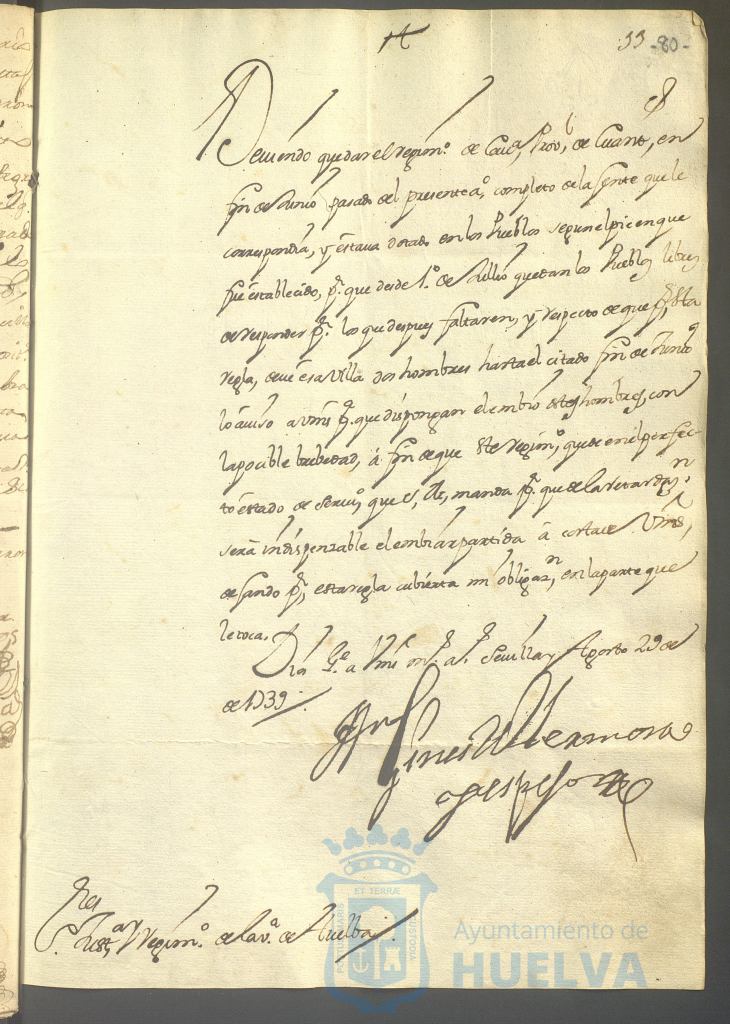 33 -80-
Deviendo quedar el regim.º de Cav.ª Prov.l de Quant.s, en
fin de Junio pasado del presente a.º completo de la Gente que le
correspondia, y estava dotado en los Pueblos segun el pie en que
fue establecido, p.r que desde 1.º de Jullio quedan los Pueblos libres
de responder p.r los que despues faltaren, y respecto de que p.r esta
regla, deve esa Villa dos hombres hasta el citado fin de Junio
lo aviso a Vms p.ª que dispongan el embio de estos hombres, con
la posible brebedad, á fin de que este regim.º quede en el perfec-
to estado de servi.º que S. M. manda p.r que de la retardaz.n
será indispensable el embiar partida á costa de Vms,
dejando p.r esta regla cubierta mi obligaz.n en la parte que
le toca.
Dios G.e a Vms m.s a.s Sevilla y Agosto 29 de
de 1739
Gines de Hermosa
y Espejo
S.res Just.ª y Regim.º de la V.ª de Huelba
ET TERRÆ
PORTUS MARIS
CUSTODIA
Ayuntamiento de
HUELVA